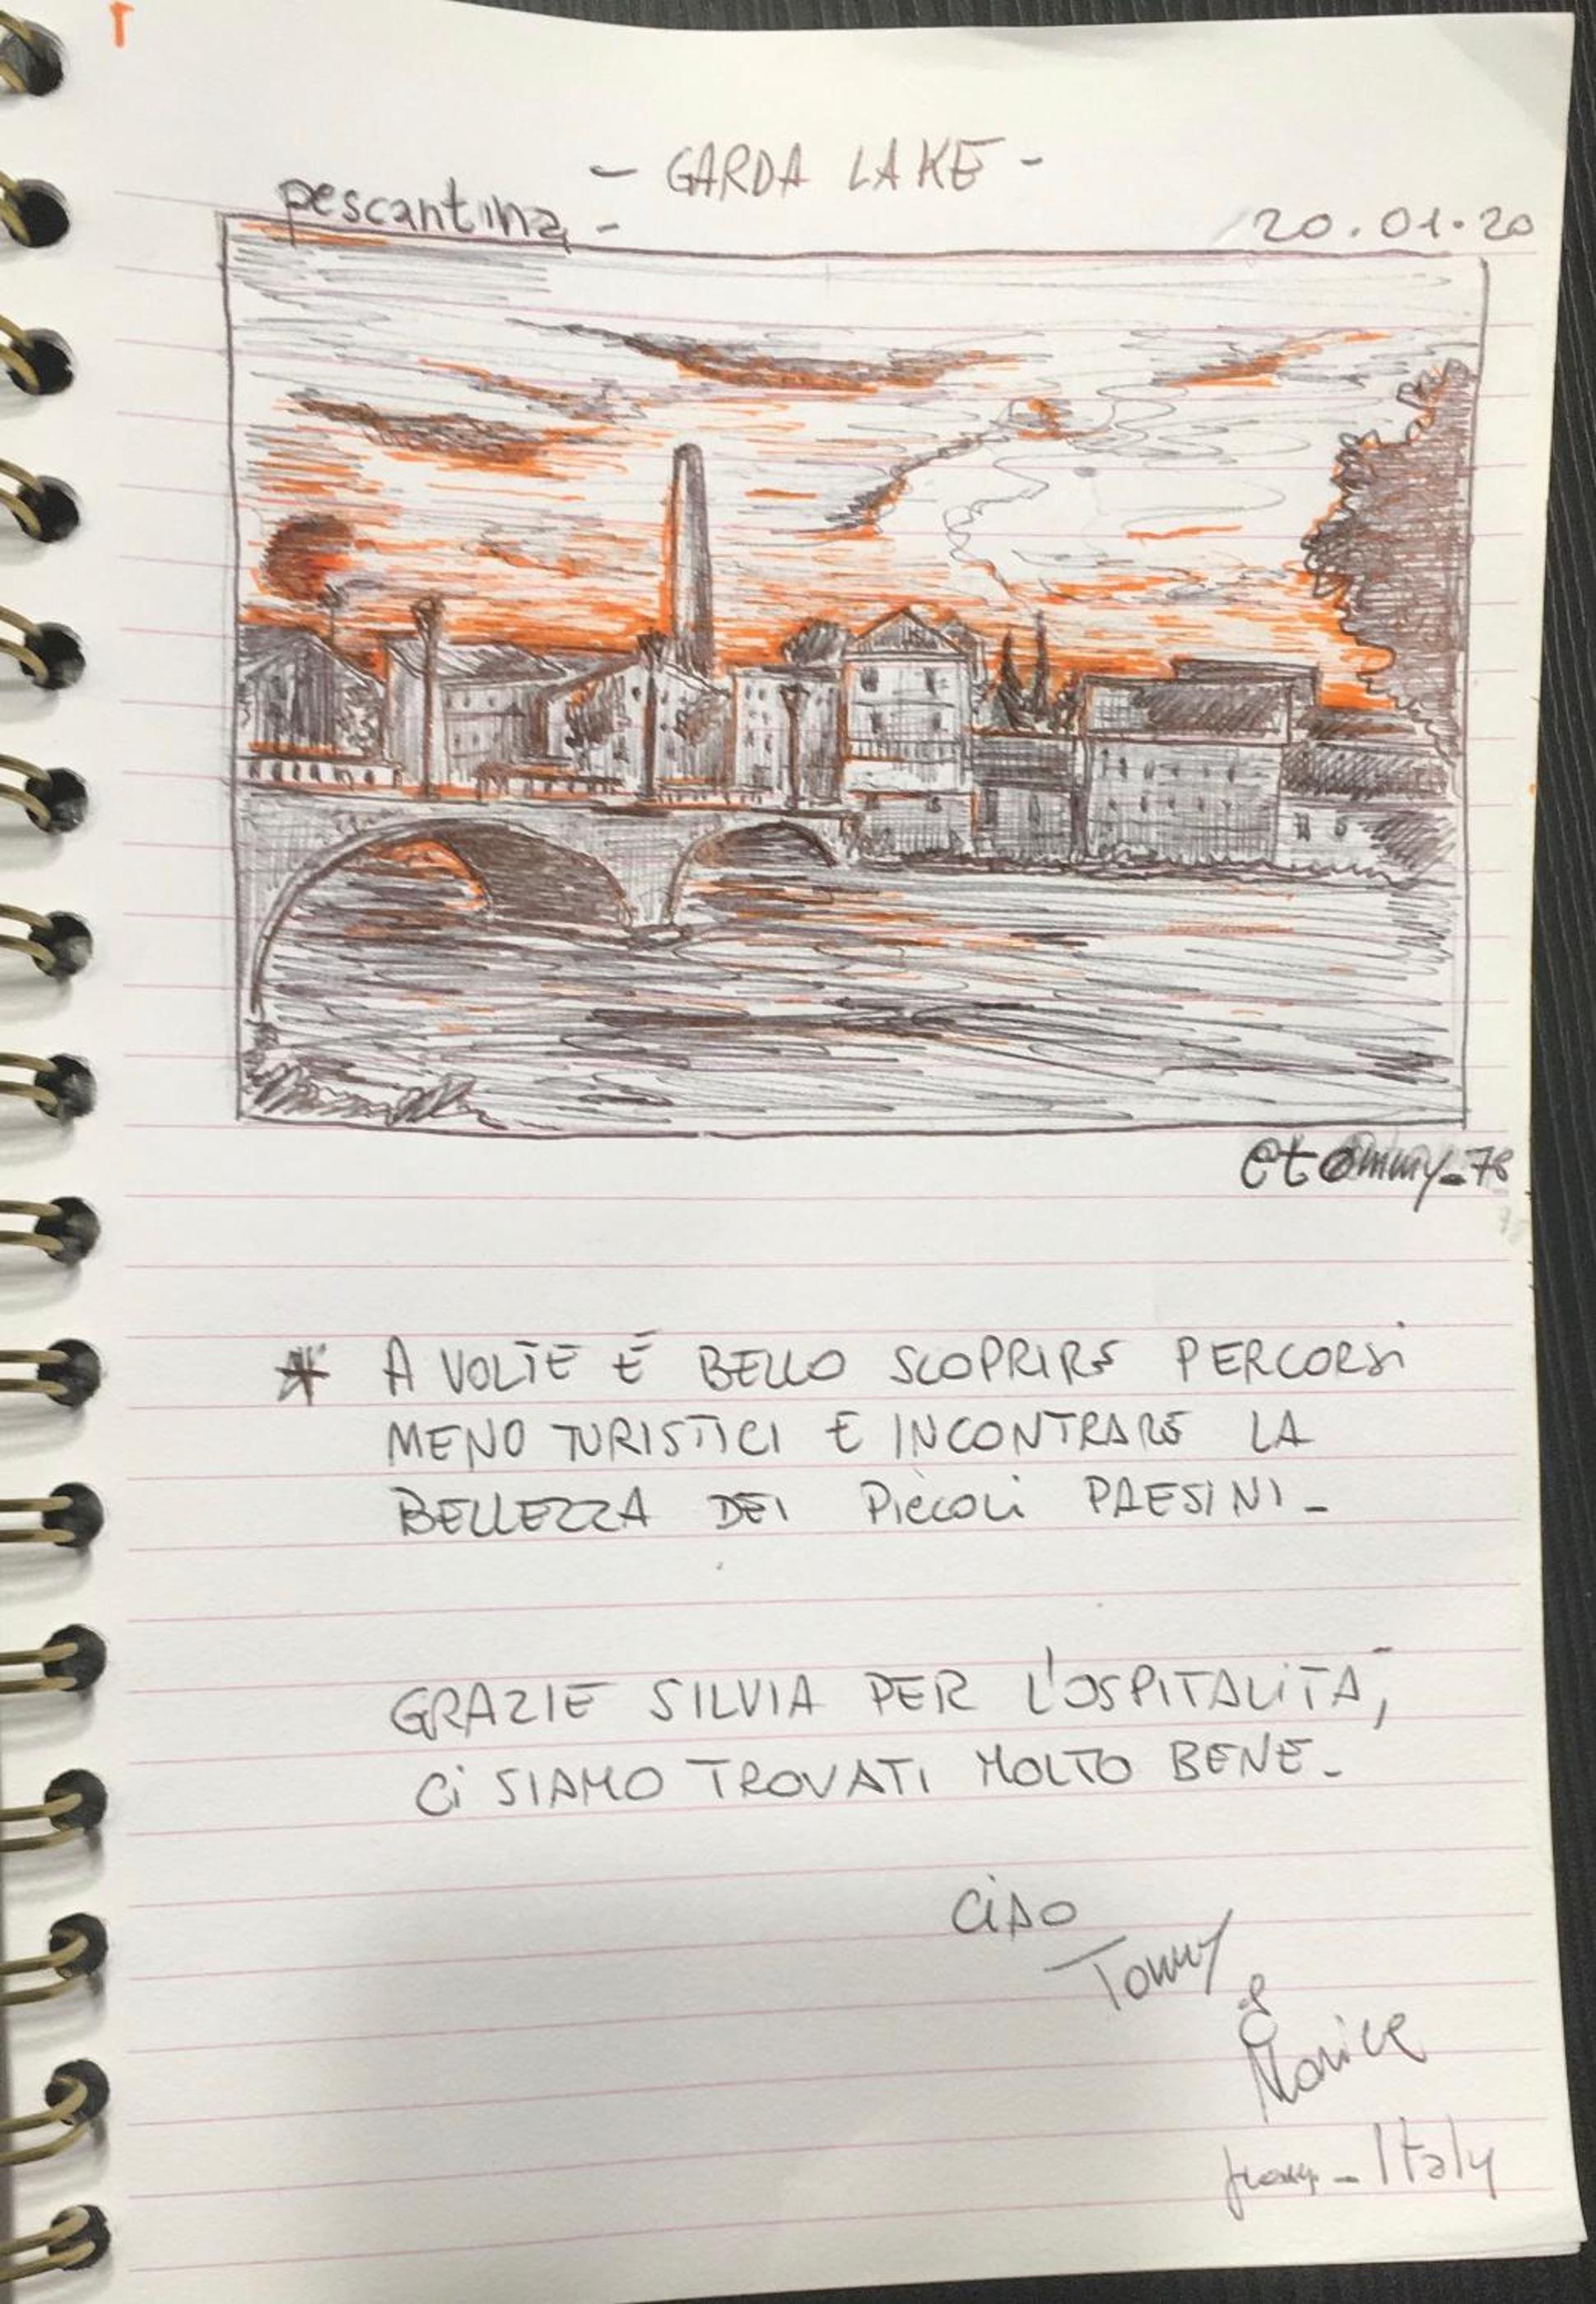 - GARDA LAKE -
pescantina -
20.01.20
@tommy_78
* A VOLTE È BELLO SCOPRIRE PERCORSI
MENO TURISTICI E INCONTRARE LA
BELLEZZA DEI PICCOLI PAESINI -
GRAZIE SILVIA PER L'OSPITALITÀ,
Ci SIAMO TROVATI MOLTO BENE -
CIAO
Tommy
&
- Italy